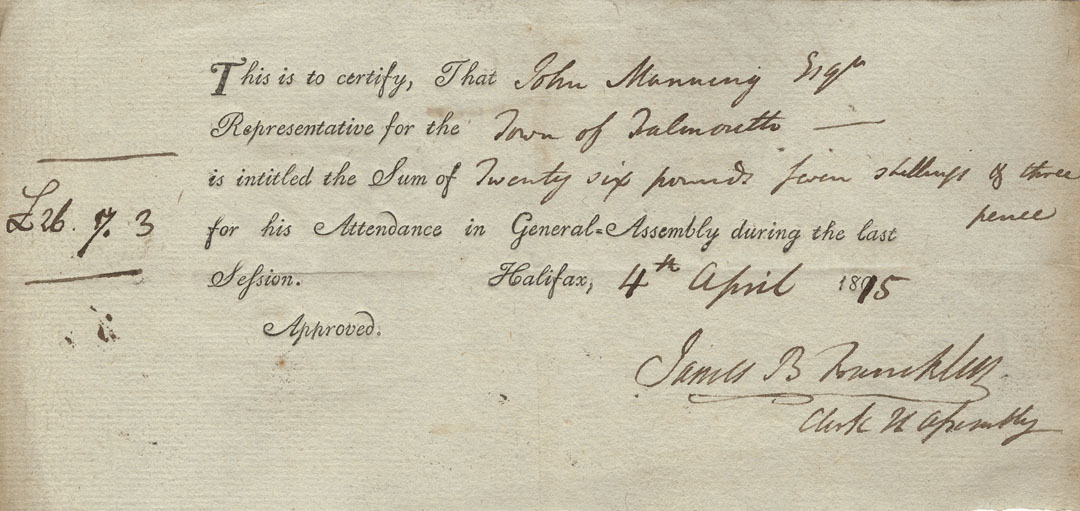 This is to certify, That John Manning Esqr
Representative for the Town of Falmouth —
is intitled the Sum of Twenty six pounds seven shillings & three
pence
£26. 7. 3
for his Attendance in General=Assembly during the last
Session. Halifax, 4th April 1815
Approved.
James B Francklin
Clerk H Assembly